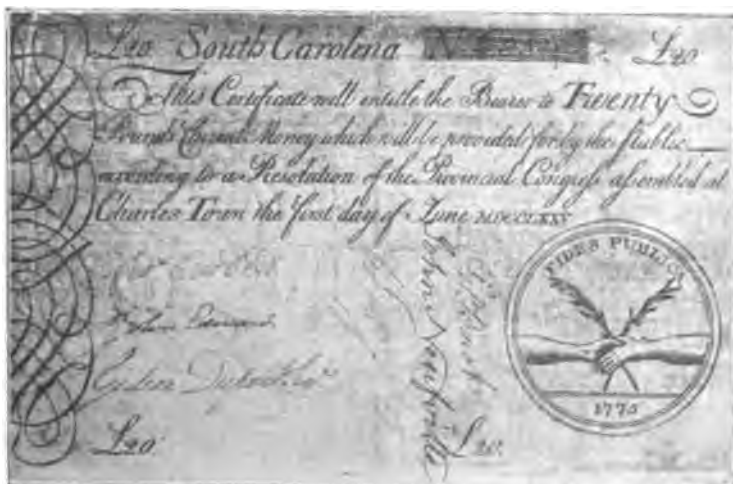 £20 South Carolina No £20
This Certificate will entitle the Bearer to Twenty
Pounds Current Money which will be provided for by the Public
according to a Resolution of the Provincial Congress assembled at
Charles Town the first day of June MDCCLXXV
FIDES PUBLICA
1775
£20 £20